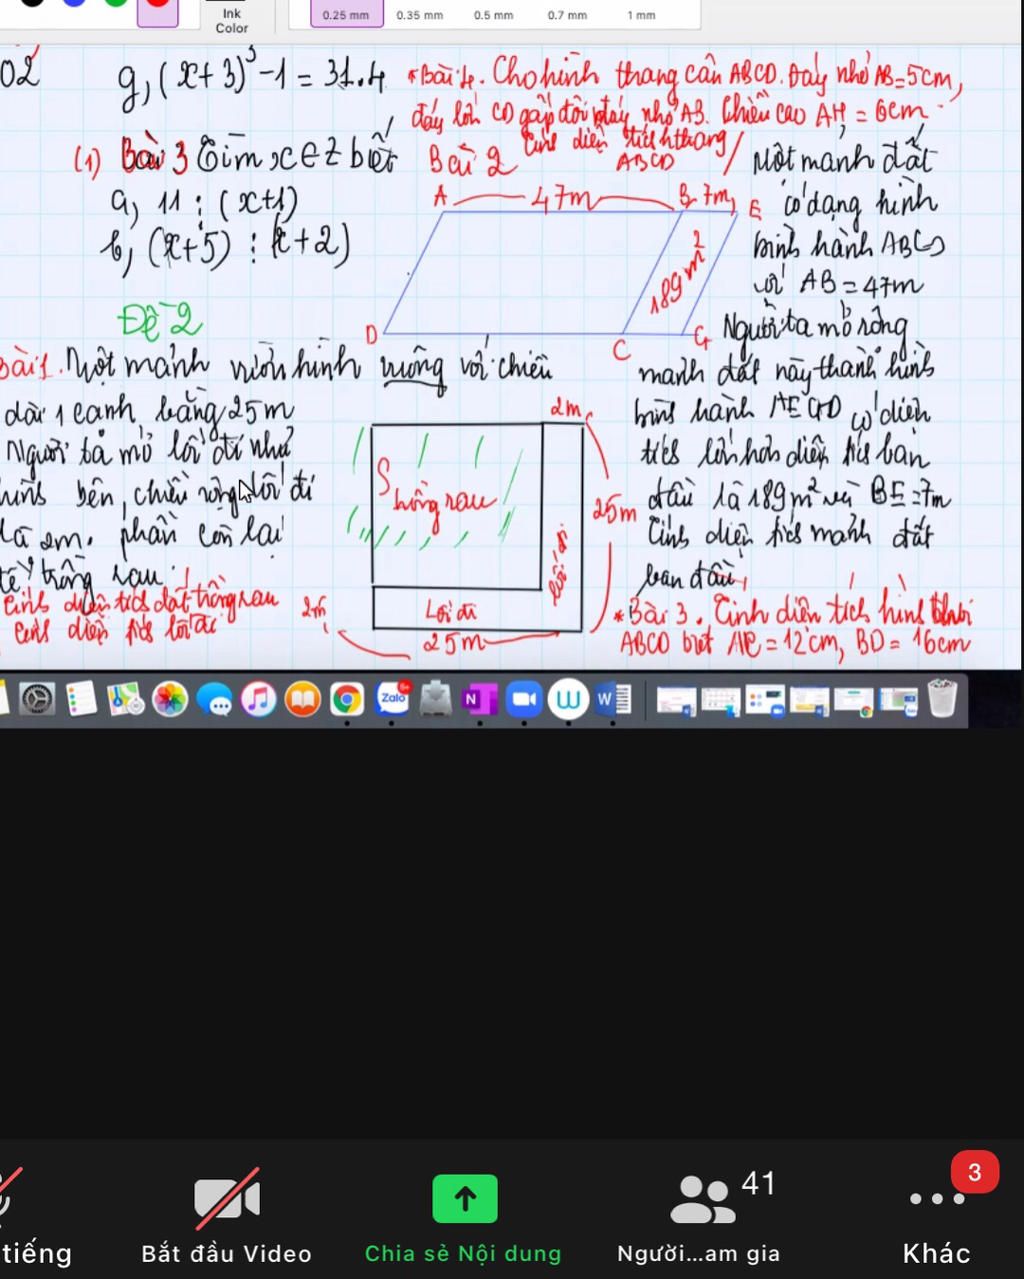 Ink
Color
0.25 mm
0.35 mm
0.5 mm
0.7 mm
1 mm
02
g, (x+3)³-1 = 31.4
*Bài 4. Cho hình thang cân ABCD. Đáy nhỏ AB=5cm,
đáy lớn CD gấp đôi đáy nhỏ AB. Chiều cao AH = 6cm
Tính diện tích hthang
ABCD
(1) Bài 3 Tìm x∈Z biết
a, 11 ⋮ (x+1)
b, (x+5) ⋮ (x+2)
Đề 2
Bài 2
A
47m
B
7m
E
189m²
D
C
G
Một mảnh đất
có dạng hình
bình hành ABCD
với AB = 47m
Người ta mở rộng
mảnh đất này thành hình
bình hành AEGD có diện
tích lớn hơn diện tích ban
đầu là 189m² và BE=7m
Tính diện tích mảnh đất
ban đầu
Bài 1. Một mảnh vườn hình vuông với chiều
dài 1 cạnh bằng 25m
Người ta mở lối đi như
hình bên, chiều rộng lối đi
là 2m. phần còn lại
để trồng rau.
Tính diện tích đất trồng rau
tính diện tích lối đi
2m
S trồng rau
25m
lối đi
2m
Lối đi
25m
*Bài 3. Tính diện tích hình thoi
ABCD biết AC = 12cm, BD = 16cm
Zalo
N
W
W
tiếng
Bắt đầu Video
Chia sẻ Nội dung
41
Người...am gia
3
Khác